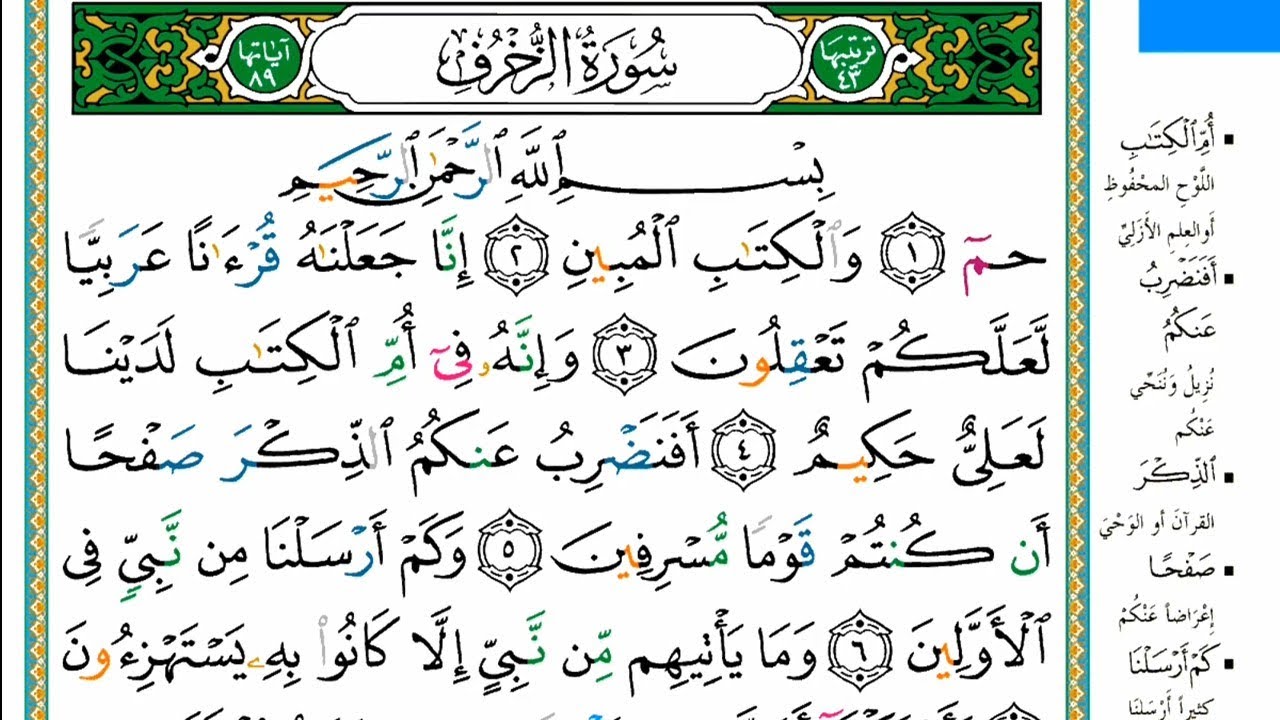 ترتيبها ٤٣
سُورَةُ الزُّخْرُفِ
آياتها ٨٩
بِسْمِ ٱللَّهِ ٱلرَّحْمَٰنِ ٱلرَّحِيمِ
حمٓ ١ وَٱلْكِتَٰبِ ٱلْمُبِينِ ٢ إِنَّا جَعَلْنَٰهُ قُرْءَٰنًا عَرَبِيًّا
لَّعَلَّكُمْ تَعْقِلُونَ ٣ وَإِنَّهُۥ فِىٓ أُمِّ ٱلْكِتَٰبِ لَدَيْنَا
لَعَلِىٌّ حَكِيمٌ ٤ أَفَنَضْرِبُ عَنكُمُ ٱلذِّكْرَ صَفْحًا
أَن كُنتُمْ قَوْمًا مُّسْرِفِينَ ٥ وَكَمْ أَرْسَلْنَا مِن نَّبِىٍّ فِى
ٱلْأَوَّلِينَ ٦ وَمَا يَأْتِيهِم مِّن نَّبِىٍّ إِلَّا كَانُوا۟ بِهِۦ يَسْتَهْزِءُونَ
▪ أُمِّ ٱلْكِتَٰبِ
اللَّوْحِ المحْفُوظِ
أَو العِلمِ الأَزَلِيِّ
▪ أَفَنَضْرِبُ
عَنكُمُ
نُزِيلُ وَنُنَحِّي
عَنْكُم
▪ ٱلذِّكْرَ
القرآنَ أو الوَحْيَ
▪ صَفْحًا
إِعْرَاضاً عَنْكُمْ
▪ كَمْ أَرْسَلْنَا
كثيراً أَرْسَلنَا